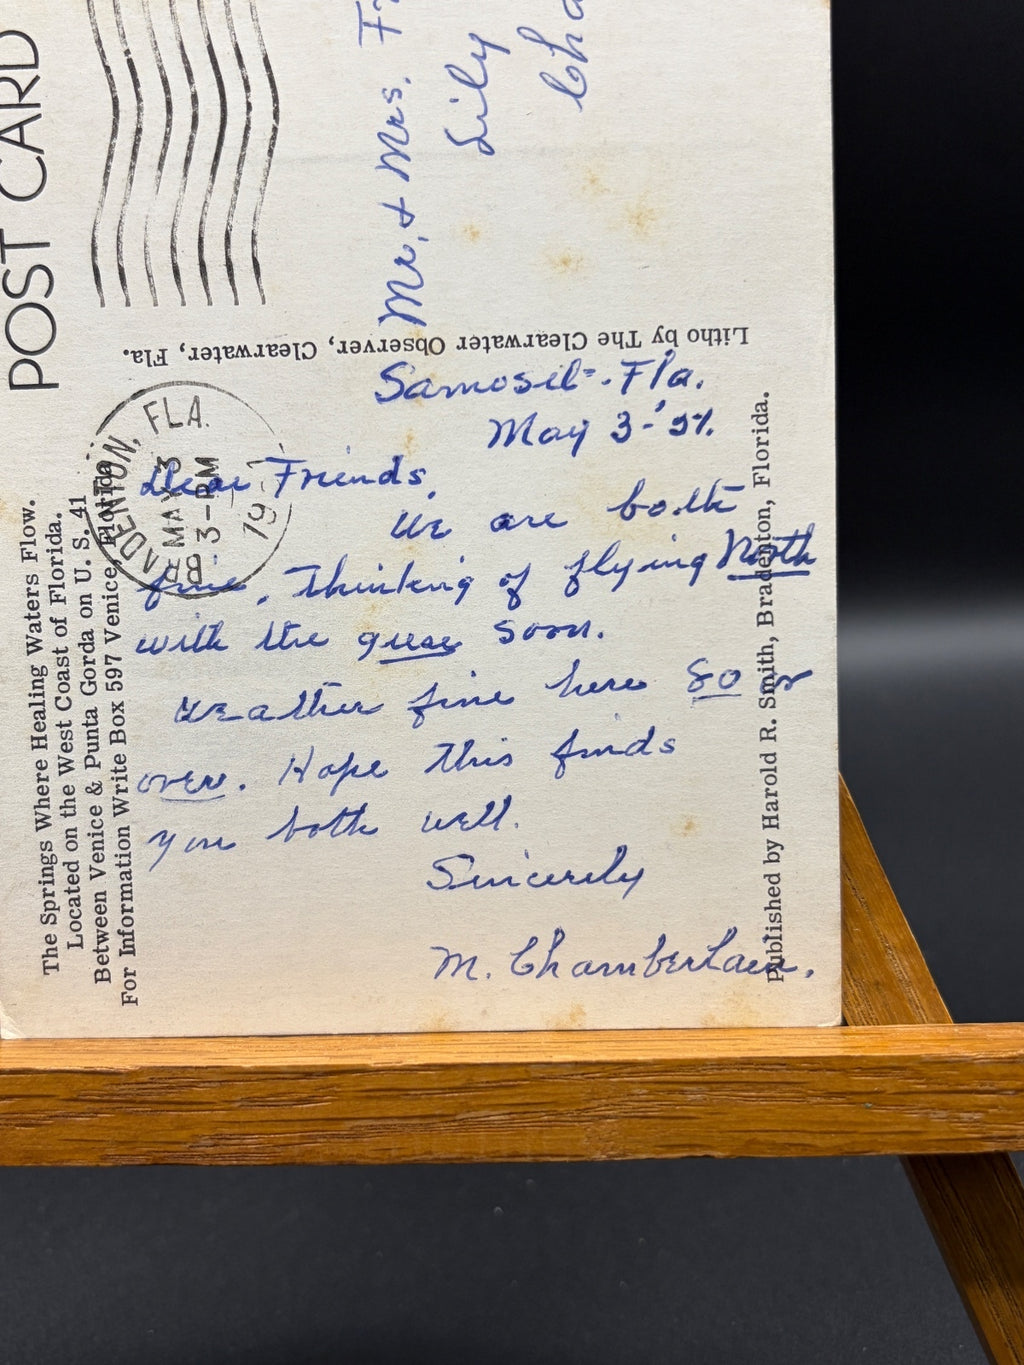 POST CARD
Mr. & Mrs.
Lily
Litho by The Clearwater Observer, Clearwater, Fla.
BRADENTON, FLA.
MAY 3
3-PM
19
The Springs Where Healing Waters Flow.
Located on the West Coast of Florida.
Between Venice & Punta Gorda on U. S. 41
For Information Write Box 597 Venice, Florida
Samoset-. Fla.
May 3-'57.
Dear Friends,
We are both
fine. Thinking of flying North
with the geese soon.
Weather fine here 80 or
over. Hope this finds
you both well.
Sincerely
M. Chamberlain.
Published by Harold R. Smith, Bradenton, Florida.